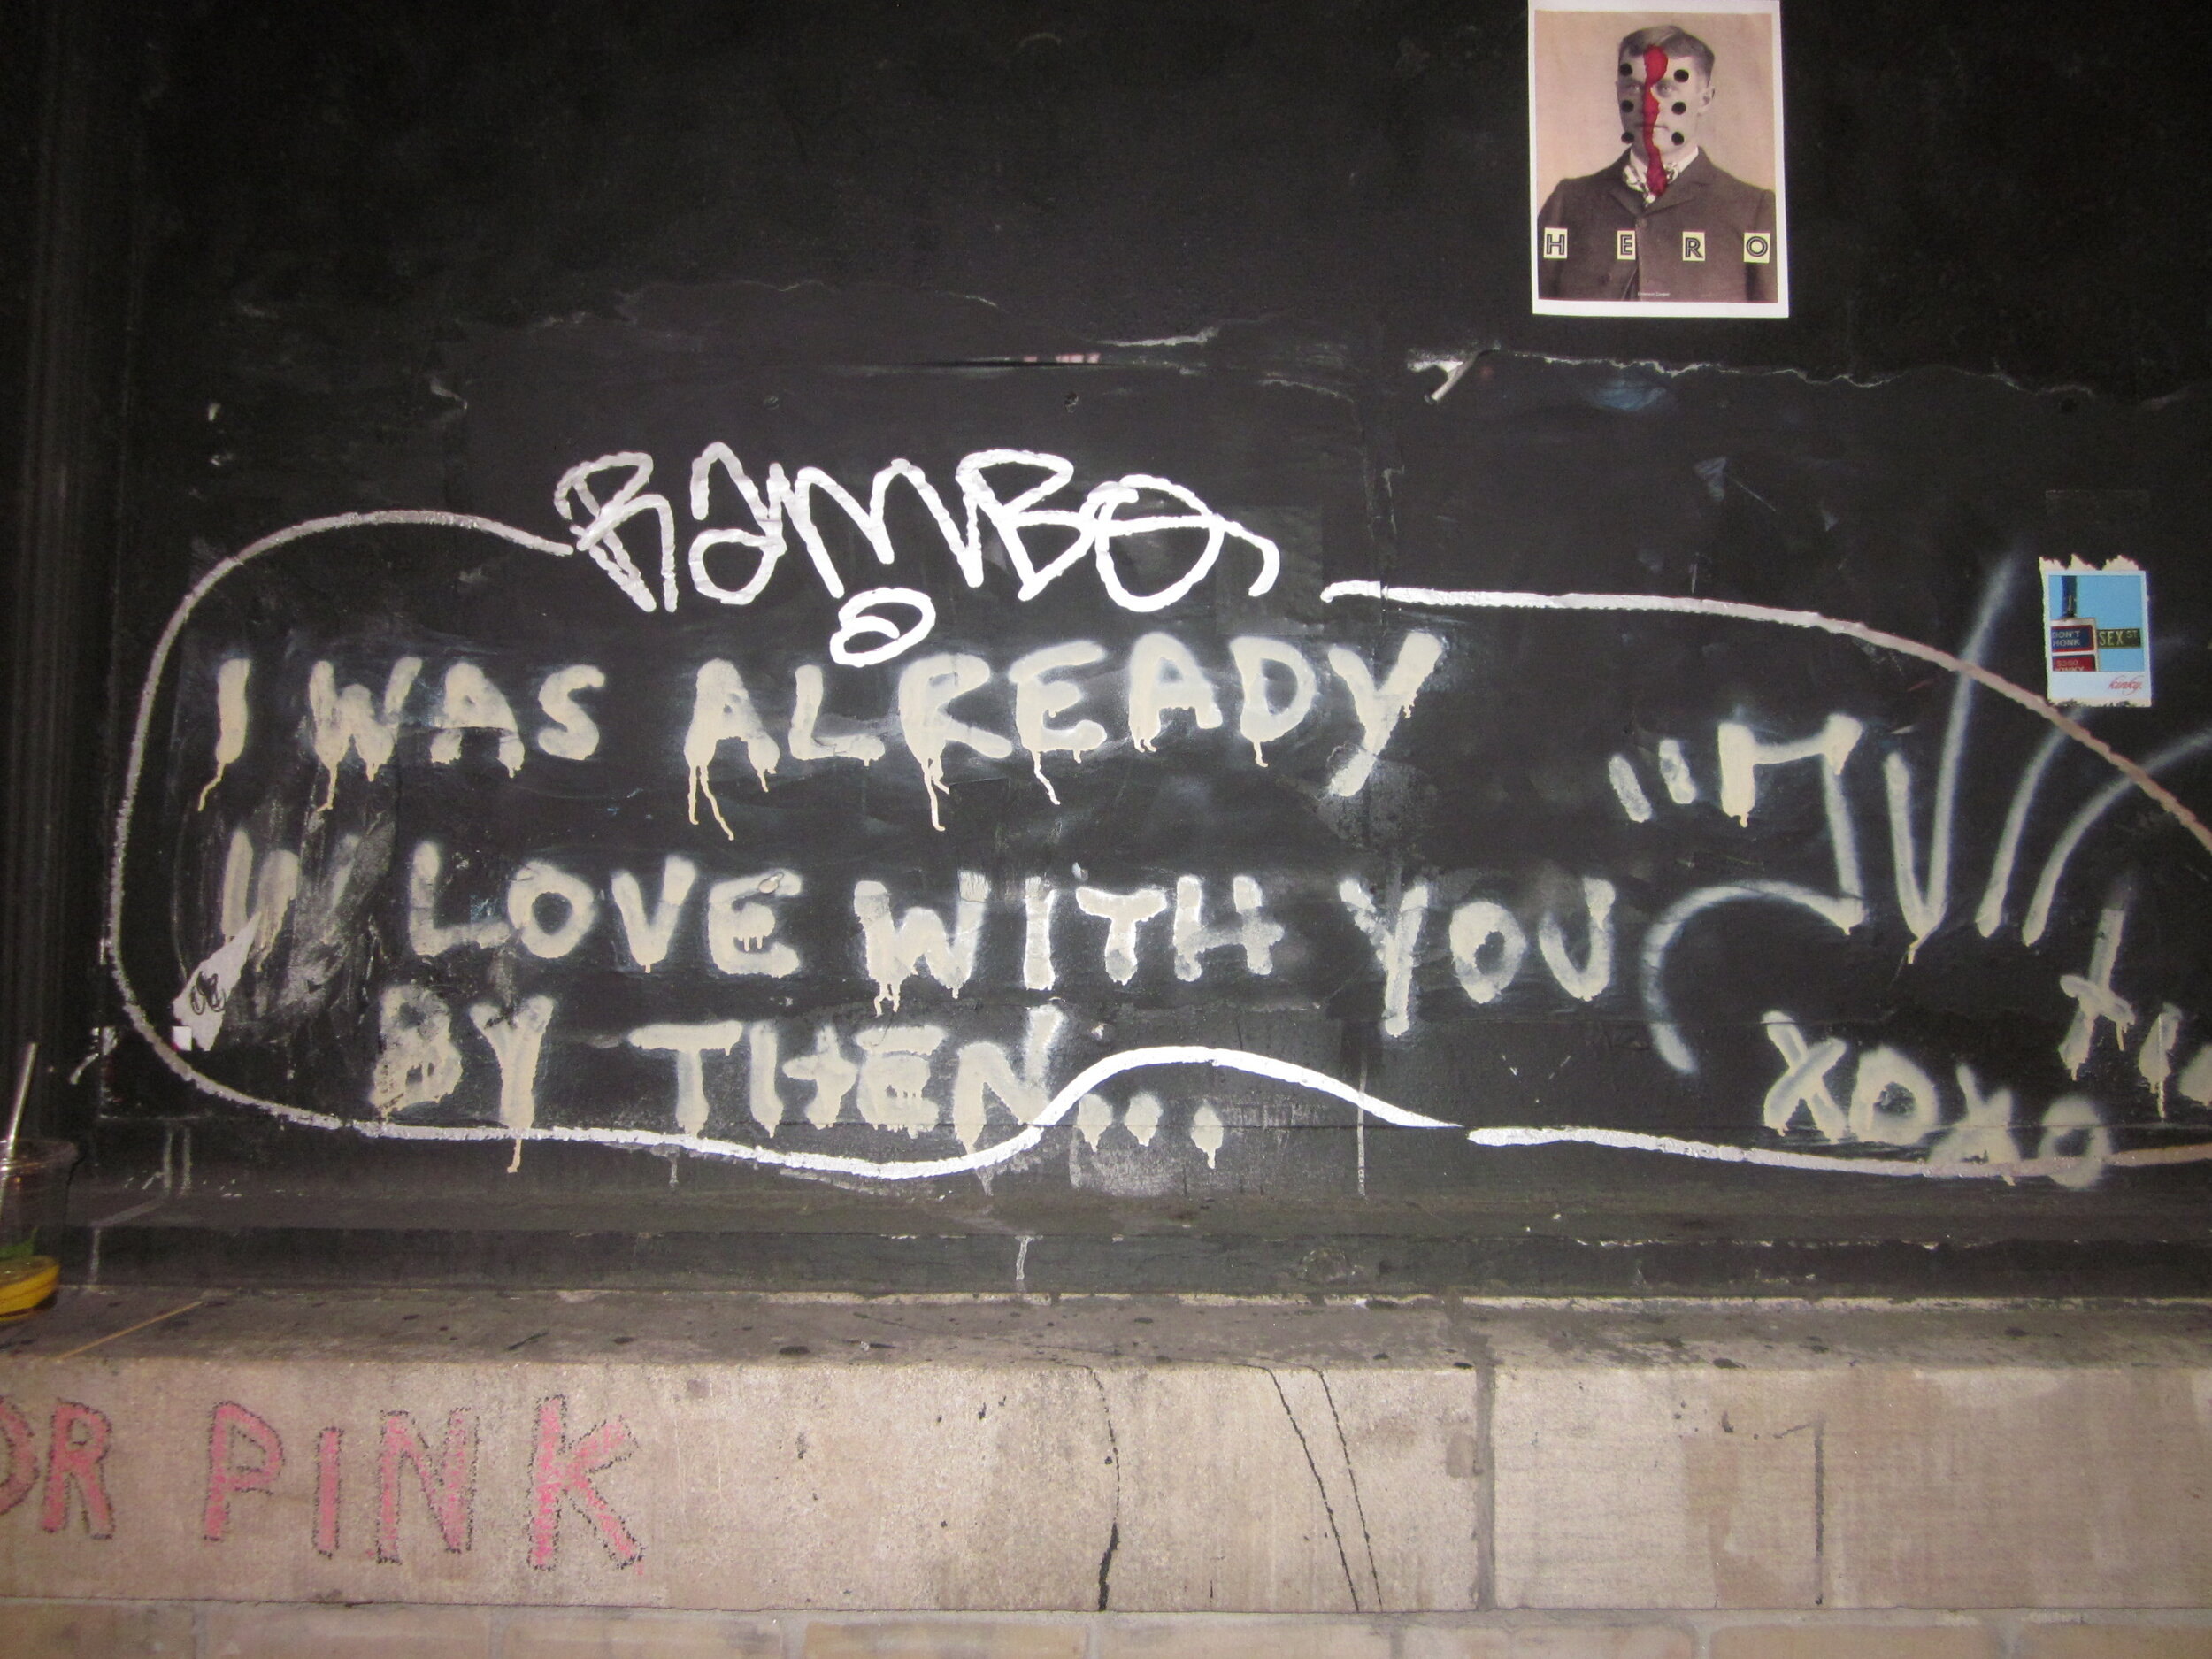 H E R O
RAMBO
I WAS ALREADY
IN LOVE WITH YOU
BY THEN...
XOXO
DON'T
HONK
SEX ST
kinky.
OR PINK